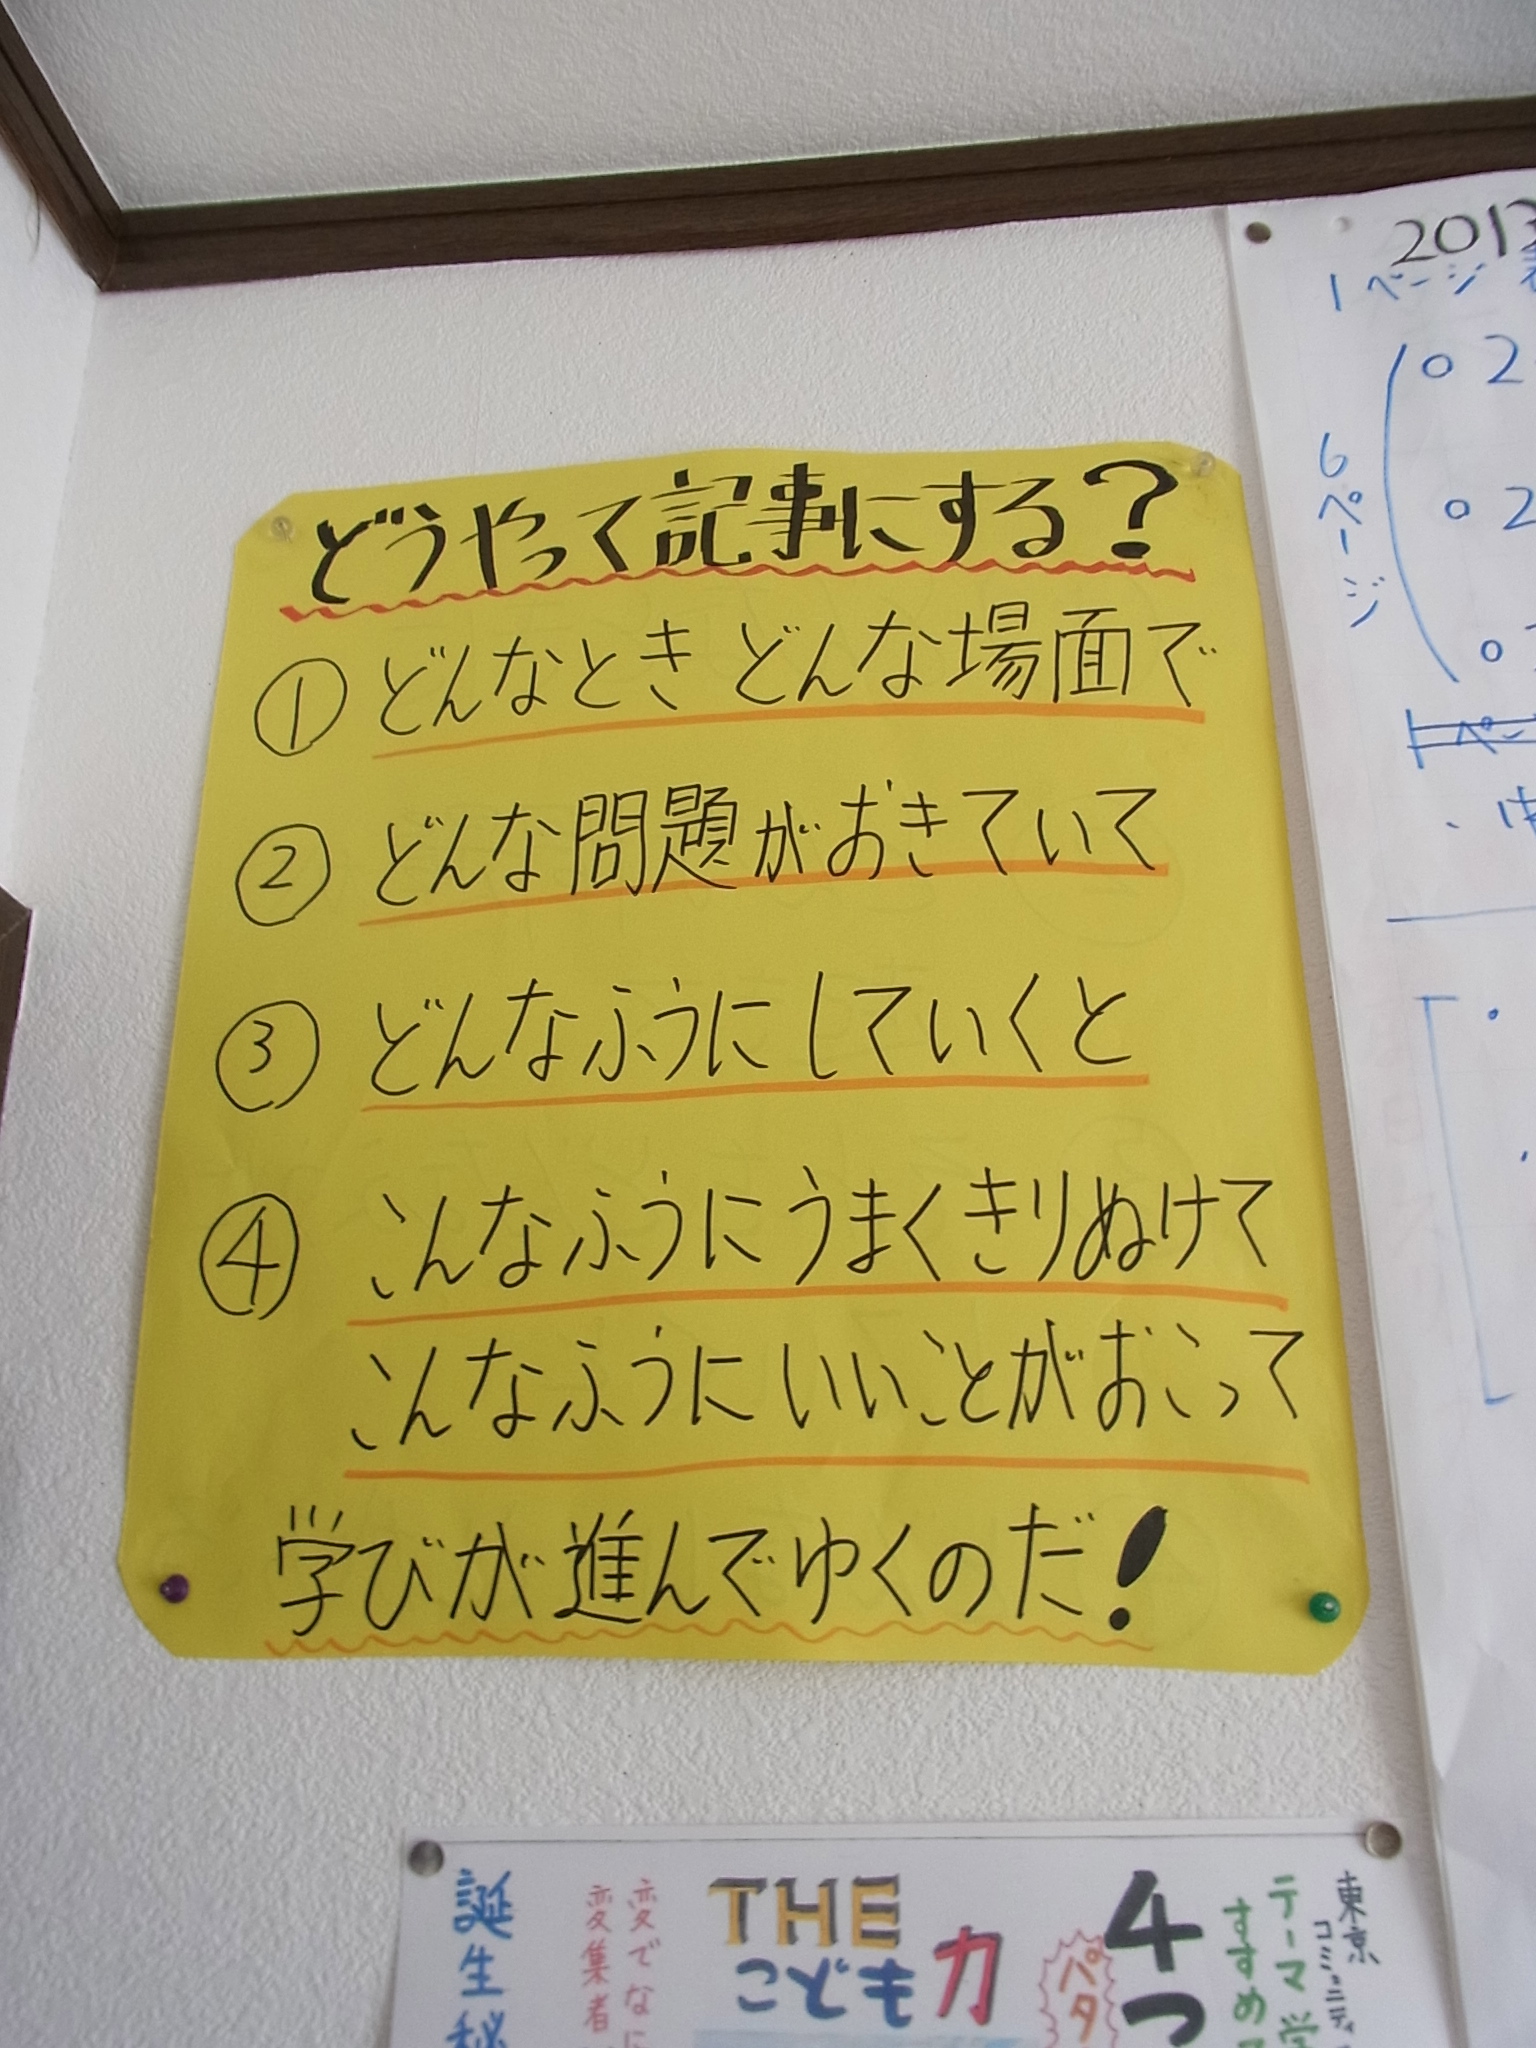 どうやって記事にする?
① どんなとき どんな場面で
② どんな問題がおきていて
③ どんなふうにしていくと
④ こんなふうにうまくきりぬけて
こんなふうにいいことがおこって
学びが進んでゆくのだ!
2013
1ページ
6ページ
2
2
東京
コミュニティ
テーマ学
すすめ
4つ
パタ
THE
こども
力
変でなに
変集者
誕生秘